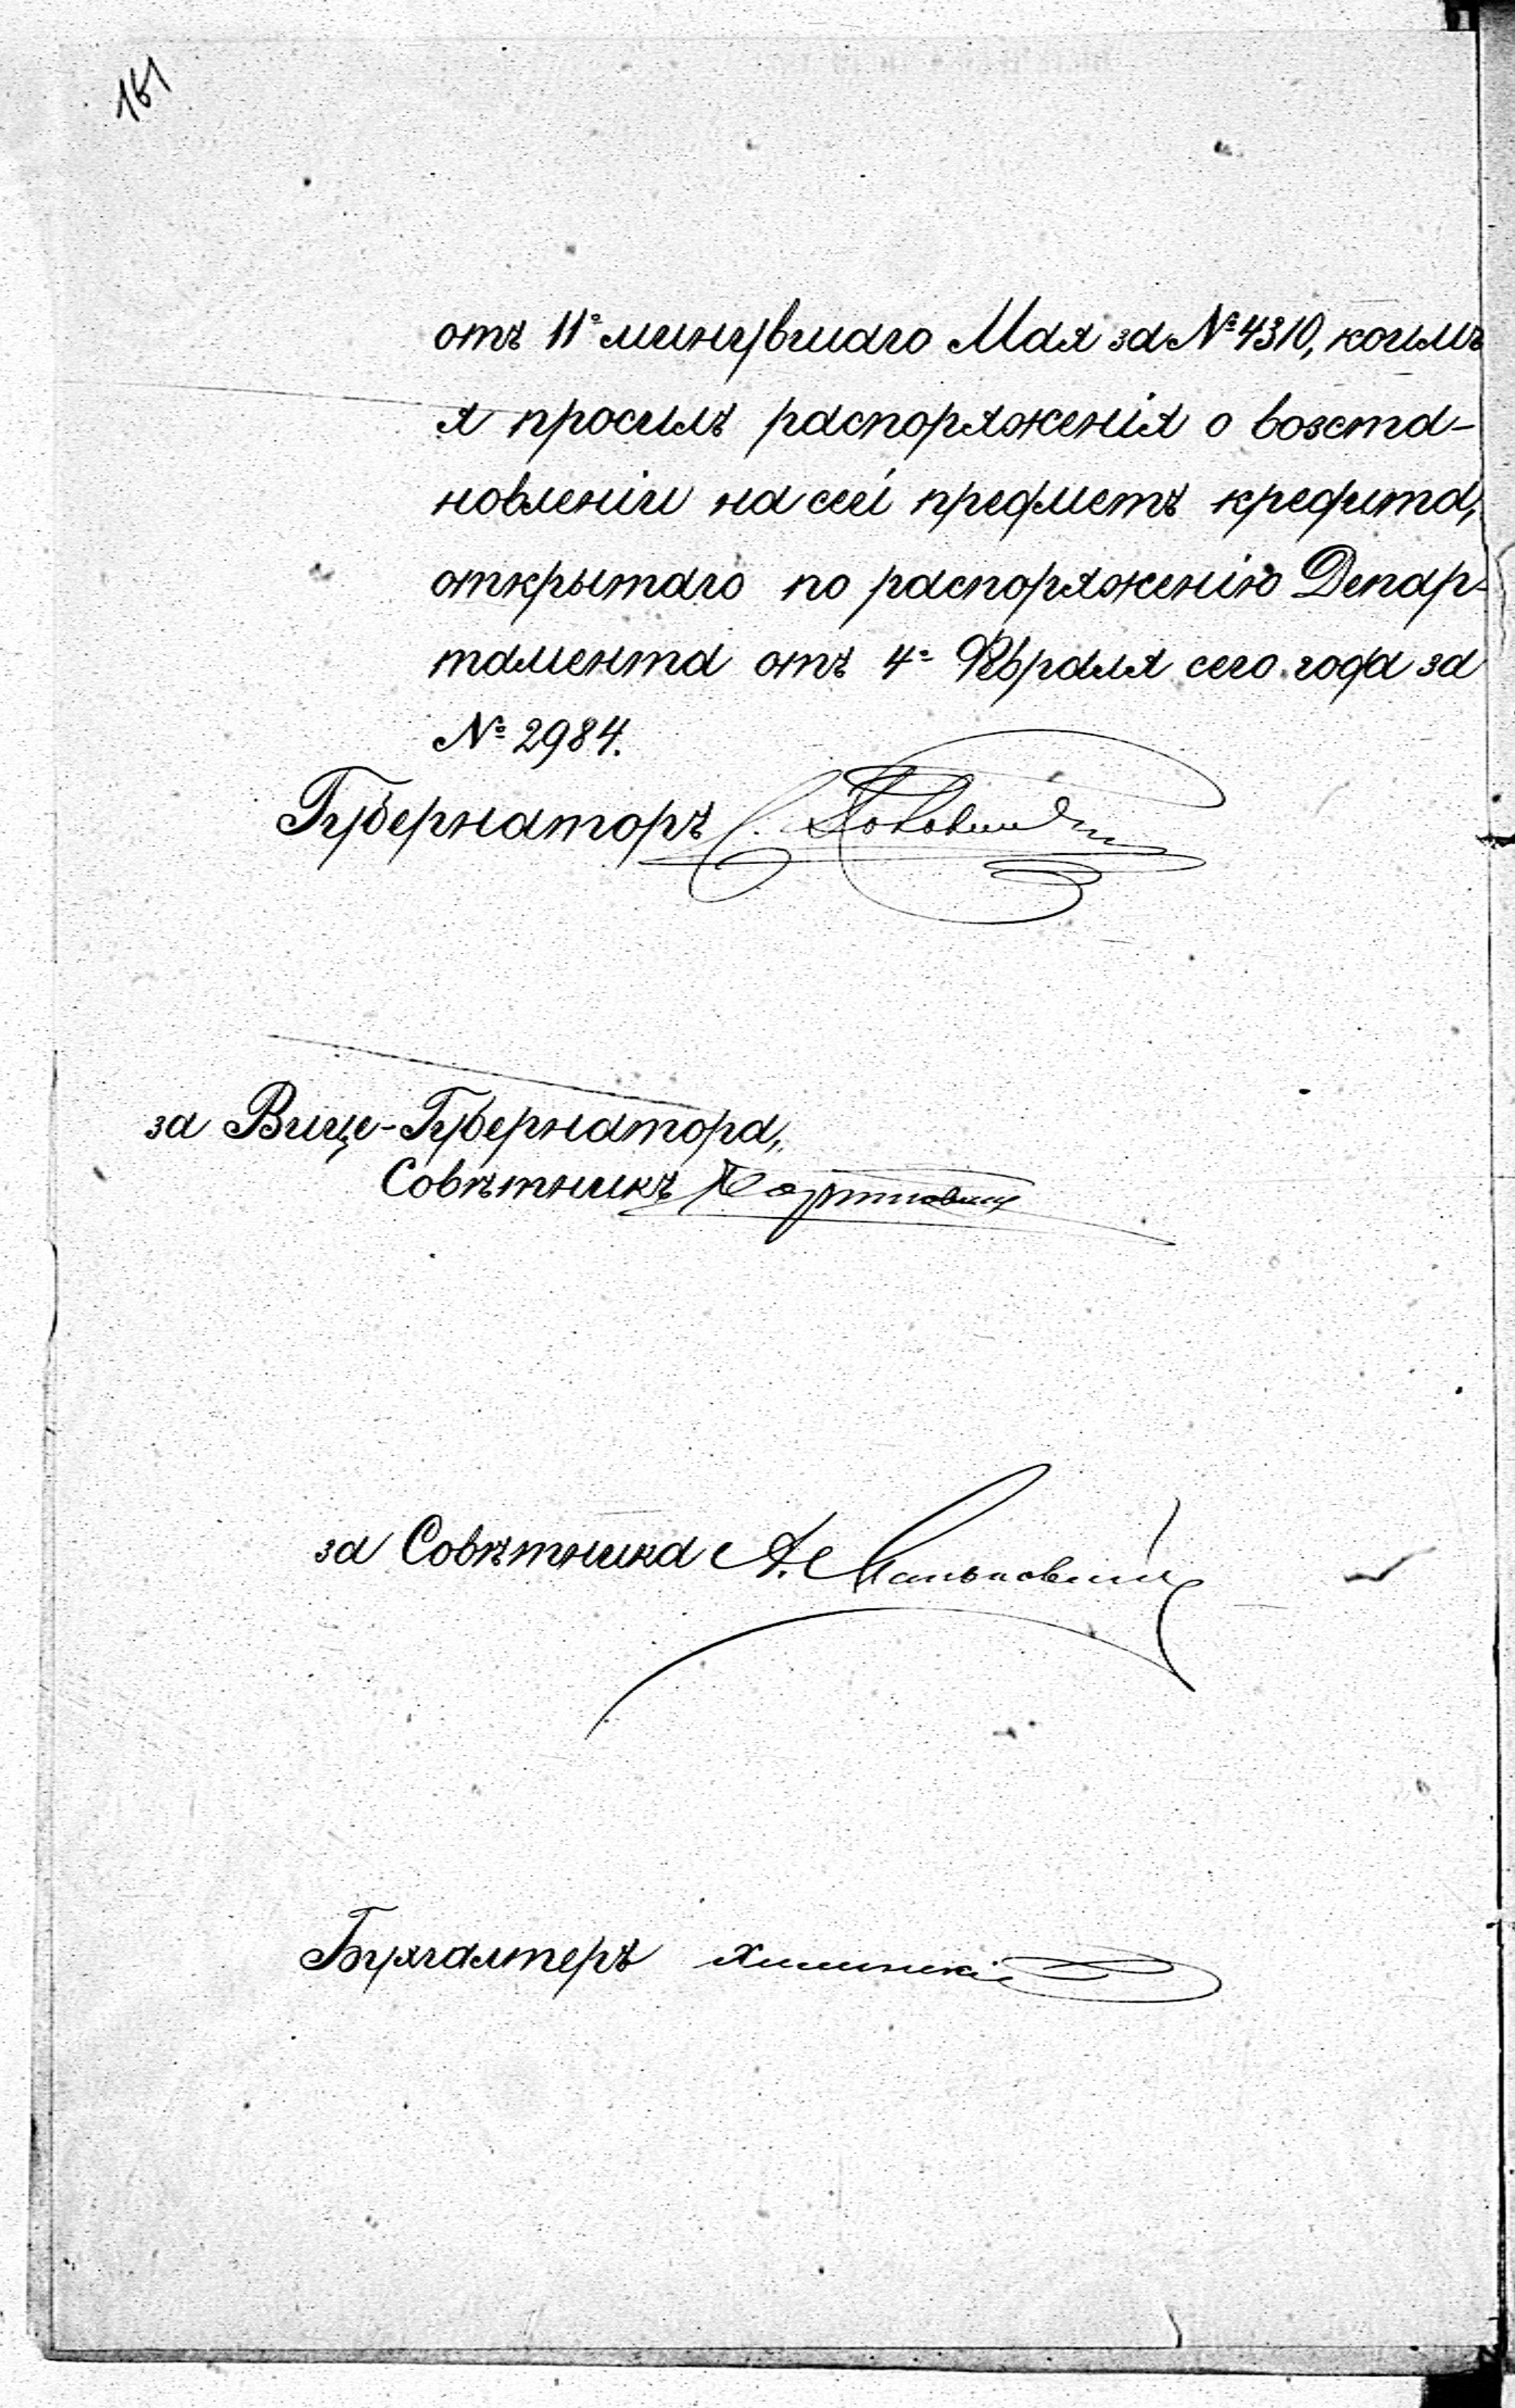 161
отъ 11º минувшаго Мая за № 4310, коимъ
я просилъ распоряженія о возста-
новленіи на сей предметъ кредита,
открытаго по распоряженію Депар-
тамента отъ 4º Февраля сего года за
№ 2984.
Губернаторъ С.
за Вице-Губернатора,
Совѣтникъ
за Совѣтника А.
Бухгалтеръ